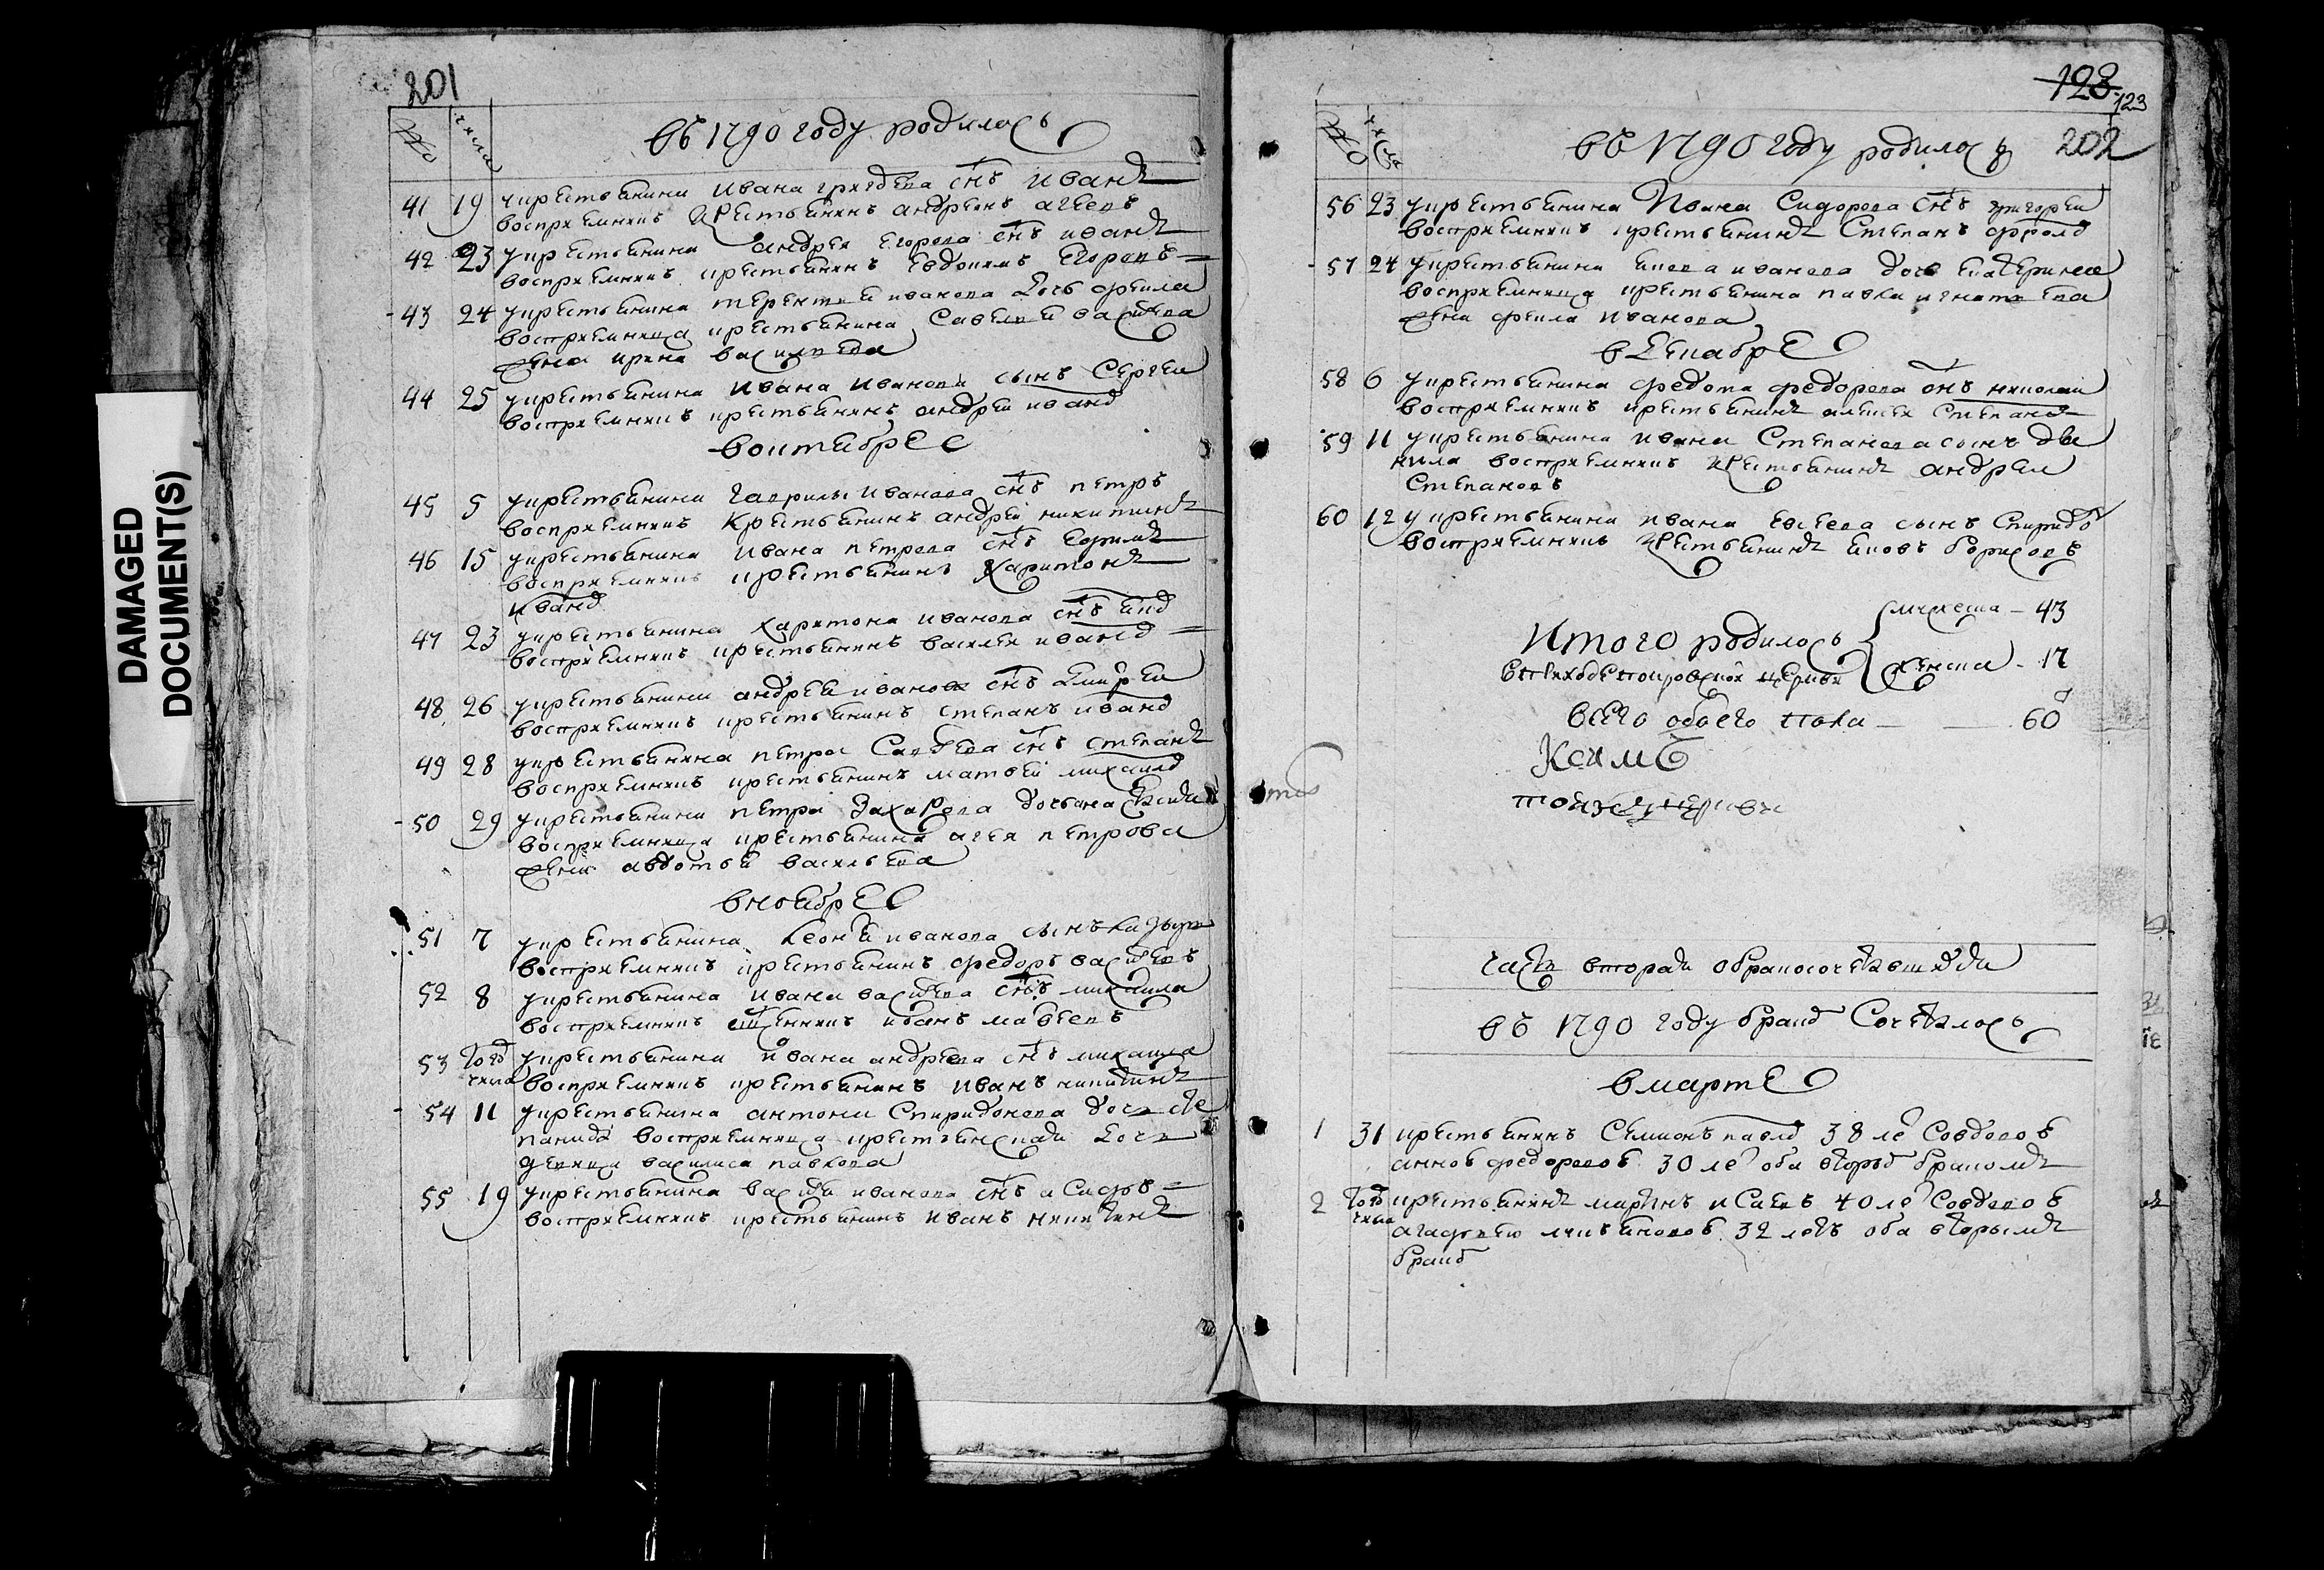 DAMAGED
DOCUMENT(S)
201
№ числа
въ 1790 году родилось
41 19 укрестьянина Ивана григорева снъ иванъ
восприемникъ крестьянинъ андреянъ агеевъ
42 23 укрестьянина андрея егорова снъ иванъ
восприемникъ крестьянинъ Евдокимъ Егоровъ
43 24 укрестьянина терентея иванова дочь фекла
восприемница крестьянина Савелея васильева
жена ирина василева
44 25 укрестьянина ивана иванова сынъ Сергеи
восприемникъ крестьянинъ андреи иванов
воктябре
45 5 укрестьянина гаврилы иванова снъ петръ
восприемникъ крестьянинъ андреи никитинъ
46 15 укрестьянина ивана петрова снъ Ефимъ
восприемникъ крестьянинъ харитонъ
иванов
47 23 укрестьянина харитона иванова снъ
восприемникъ крестьянинъ василеи иванов
48 26 укрестьянина андрея иванова снъ дмитреи
восприемникъ крестьянинъ степанъ иванов
49 28 укрестьянина петра Савелева снъ степанъ
восприемникъ крестьянинъ матвеи михаилов
50 29 укрестьянина петра Захарова дочь
восприемница крестьянина агея петрова
жена авдотья васильева
вноябре
51 7 укрестьянина Леонтя иванова сынъ
восприемникъ крестьянинъ федоръ васильевъ
52 8 укрестьянина ивана васильева снъ михаила
восприемникъ священникъ иванъ матвеевъ
53 того числа укрестьянина ивана андреева снъ михаила
восприемникъ крестьянинъ иванъ никитинъ
54 11 укрестьянина антона Спиридонова дочь сте
панида восприемница крестьянская дочь
девица василиса павлова
55 19 укрестьянина василя иванова снъ
восприемникъ крестьянинъ иванъ никитинъ
128 123
№ числа
въ 1790 году родилось 202
56 23 укрестьянина Ивана Сидорова снъ григореи
восприемникъ крестьянинъ Степанъ фролов
57 24 укрестьянина якова иванова дочь екатерина
восприемница крестьянина павла игнатьева
жена фекла иванова
вдекабре
58 6 укрестьянина федота федорова снъ николаи
восприемникъ крестьянинъ алексеи Степановъ
59 11 укрестьянина ивана Степанова сынъ да
нила восприемникъ крестьянинъ андреи
Степановъ
60 12 укрестьянина ивана Евсеева сынъ Спиридо
восприемникъ крестьянинъ яковъ борисовъ
Итого родилось мужеска 43
вприходе покровской церкви женска 17
всего обоего пола 60
Къ
тойже церкви
часть вторая обракосочетавшихся
въ 1790 году браков Сочеталось
вмарте
1 31 крестьянинъ Семионъ павлов 38 ле Совдовою
анною федоровою 30 ле оба вторым бракомъ
2 того числа крестьянинъ мартинъ исаевъ 40 ле Совдовою
агафьею 32 летъ оба вторымъ
браком